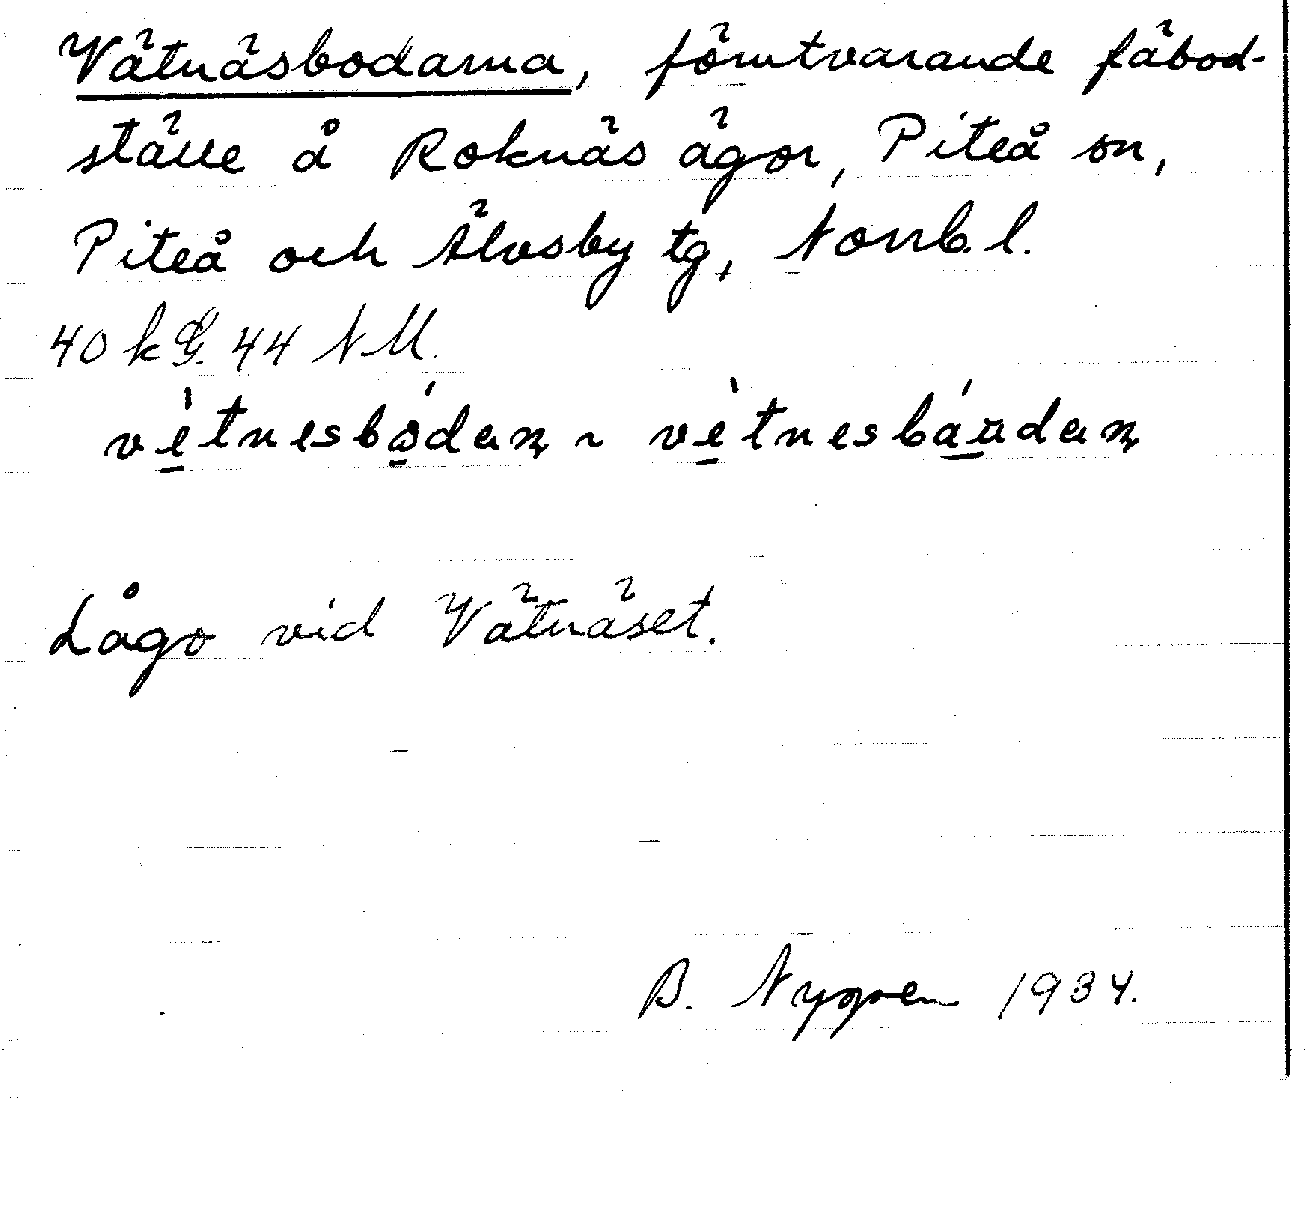 Vätnäsbodarna, förutvarande fäbod-
ställe å Roknäs ägor, Piteå sn,
Piteå och Älvsby tg, Norrb. l.
40 kG. 44 NM.
vètnesbódan ~ vètnesbáudan
Lågo vid Vätnäset.
B. Nygren 1934.